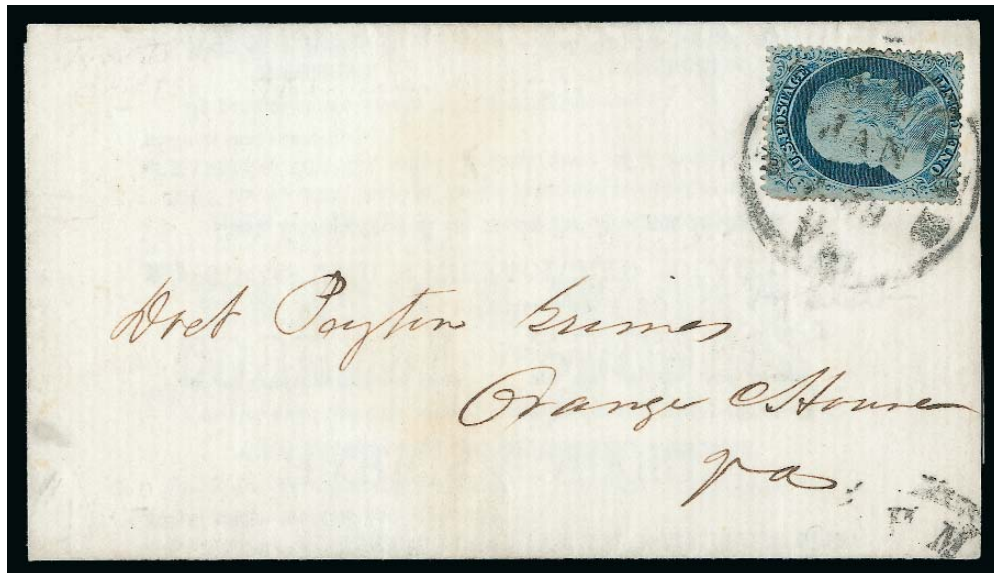 U.S. POSTAGE
ONE CENT
JAN
VA.
Doct Peyton Grimes
Orange C House
Va.